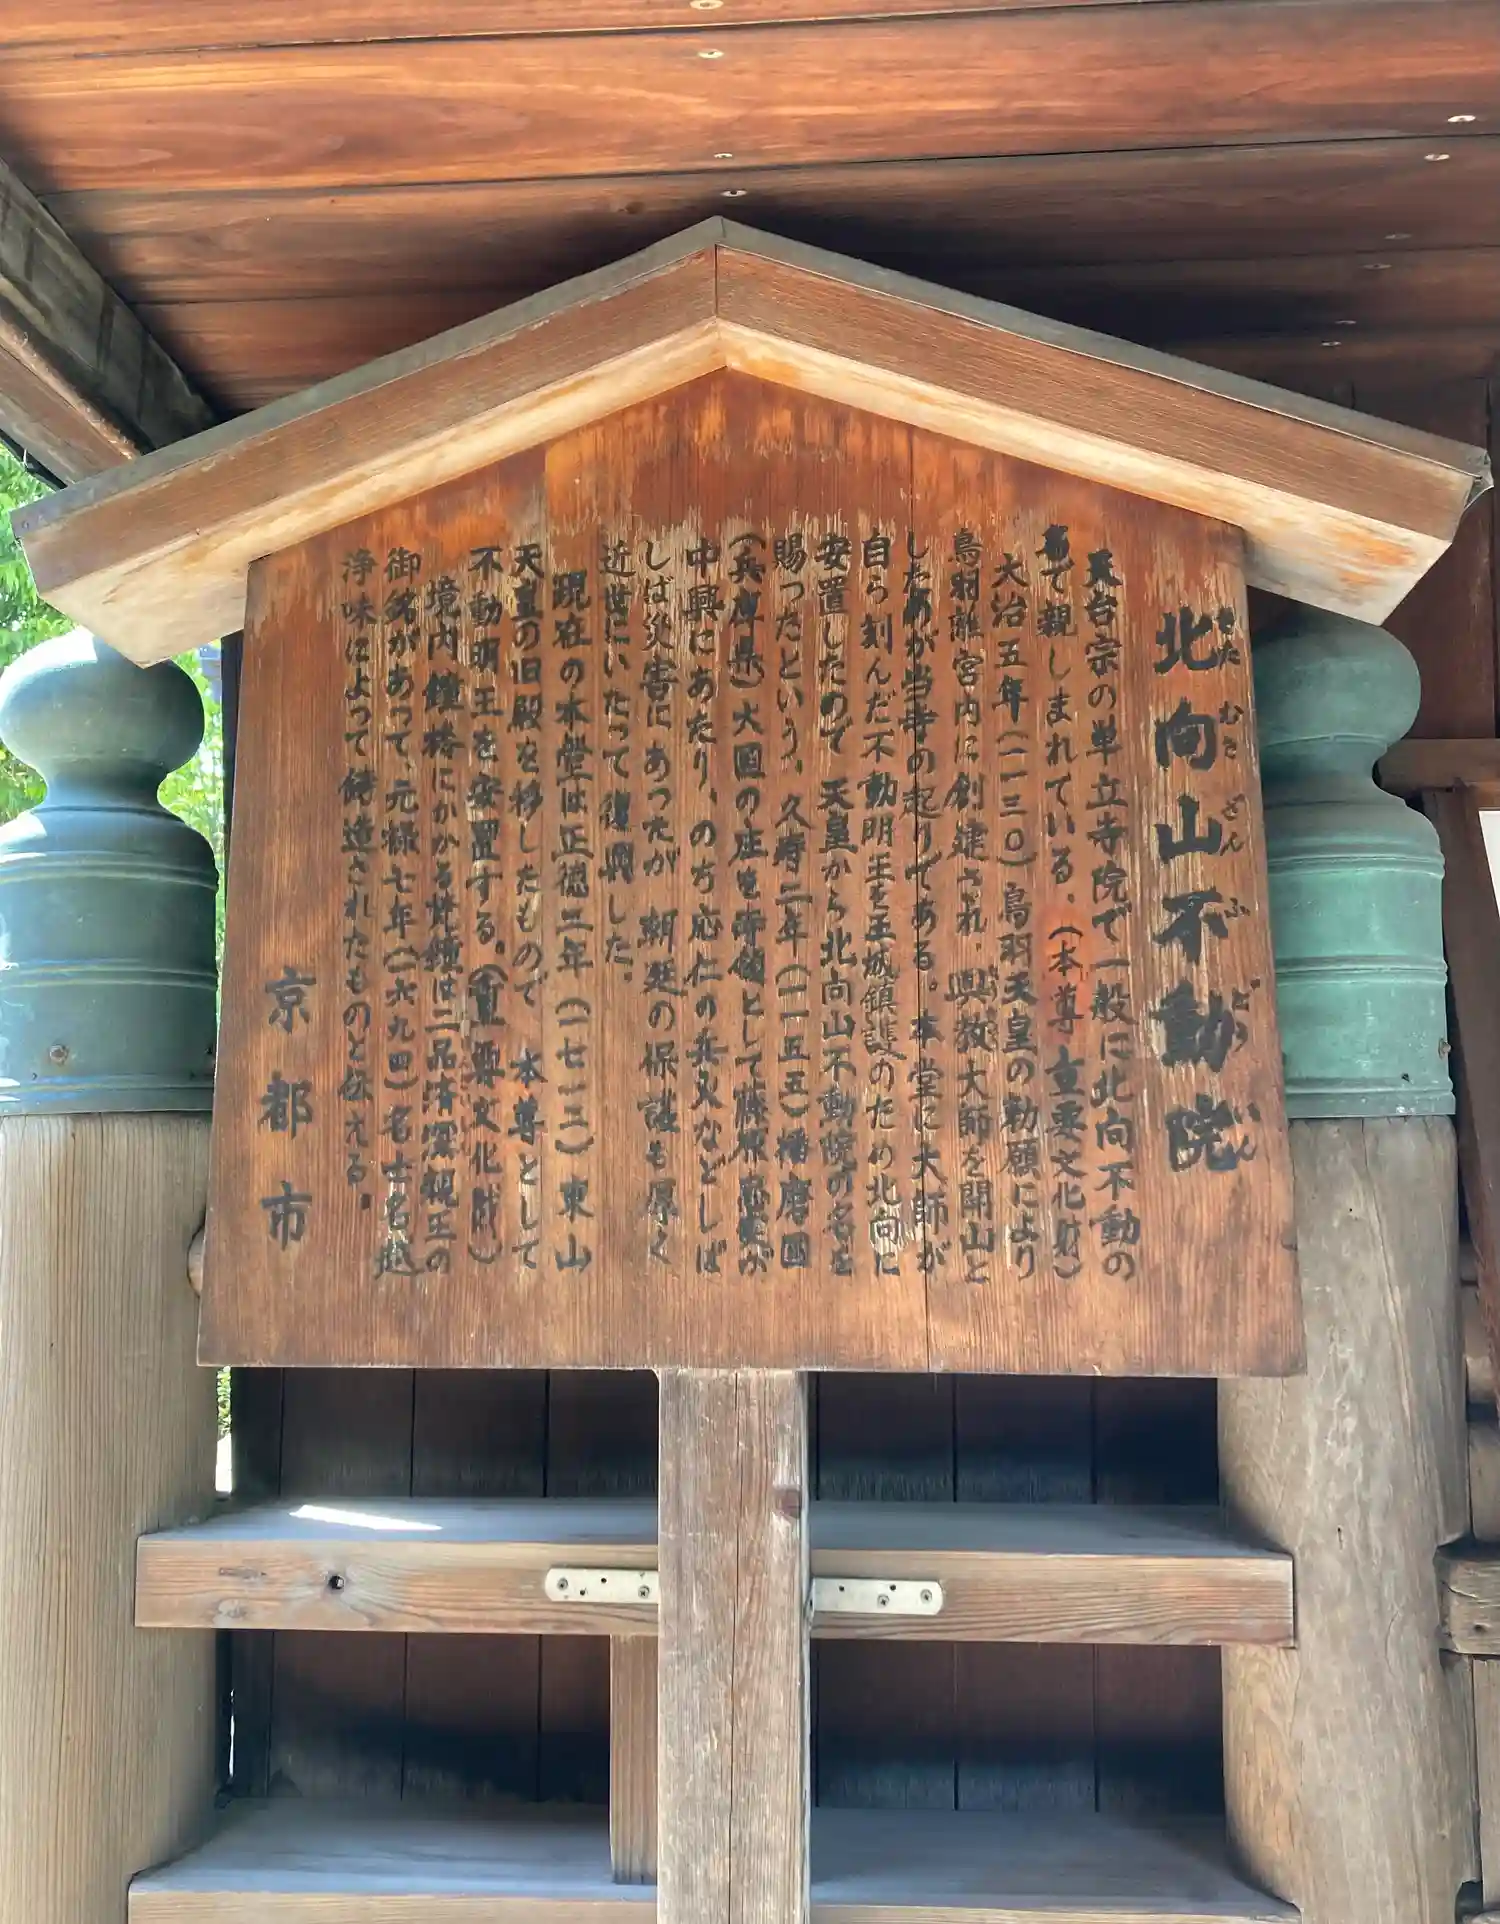 北向山不動院
きたむきざんふどういん
天台宗の単立寺院で一般に北向不動の
名で親しまれている。(本尊 重要文化財)
大治五年(一一三〇)鳥羽天皇の勅願により
鳥羽離宮内に創建され、興教大師を開山と
したのが当寺の起りである。本堂に大師が
自ら刻んだ不動明王を王城鎮護のため北向に
安置したので 天皇から北向山不動院の名を
賜ったという、久寿二年(一一五五)播磨国
(兵庫県)大国の庄を寺領として藤原忠実が
中興にあたり、のち応仁の兵火などしば
しば災害にあったが 朝廷の保護も厚く
近世にいたって復興した。
現在の本堂は正徳二年(一七一二)東山
天皇の旧殿を移したもので 本尊として
不動明王を安置する。(重要文化財)
境内 鐘楼にかかる梵鐘は二品済深親王の
御銘があって、元禄七年(一六九四)名士名越
浄味によって鋳造されたものと伝える。
京都市